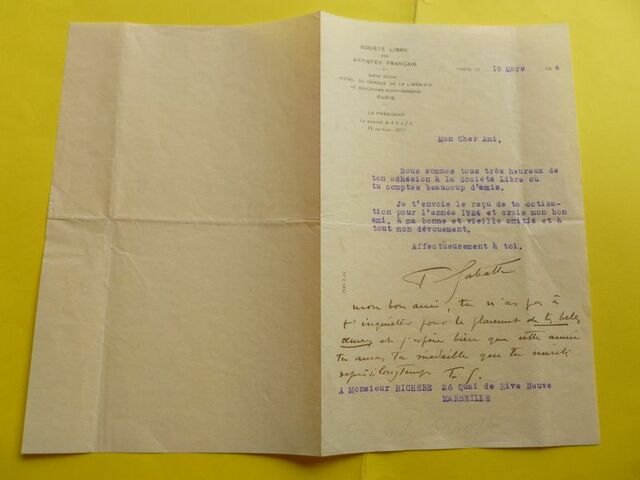 SOCIÉTÉ LIBRE
DES
ARTISTES FRANÇAIS
SIÈGE SOCIAL
HOTEL DU CERCLE DE LA LIBRAIRIE
BOULEVARD SAINT-GERMAIN
PARIS
LE PRÉSIDENT
PARIS, LE 19 Mars 4
Mon Cher Ami,
Nous sommes tous très heureux de
ton adhésion à la Société Libre où
tu comptes beaucoup d'amis.
Je t'envoie le reçu de ta cotisa-
tion pour l'année 1924 et crois mon bon
ami, à ma bonne et vieille amitié et à
tout mon dévouement.
Affectueusement à toi.
Sabatté
mon bon ami, tu n'as pas à
t'inquiéter pour le placement de tes belles
et j'espère bien que cette année
tu auras ta médaille que tu
longtemps
A Monsieur RICHEBE 26 Quai de Rive Neuve
MARSEILLE
Sabatté